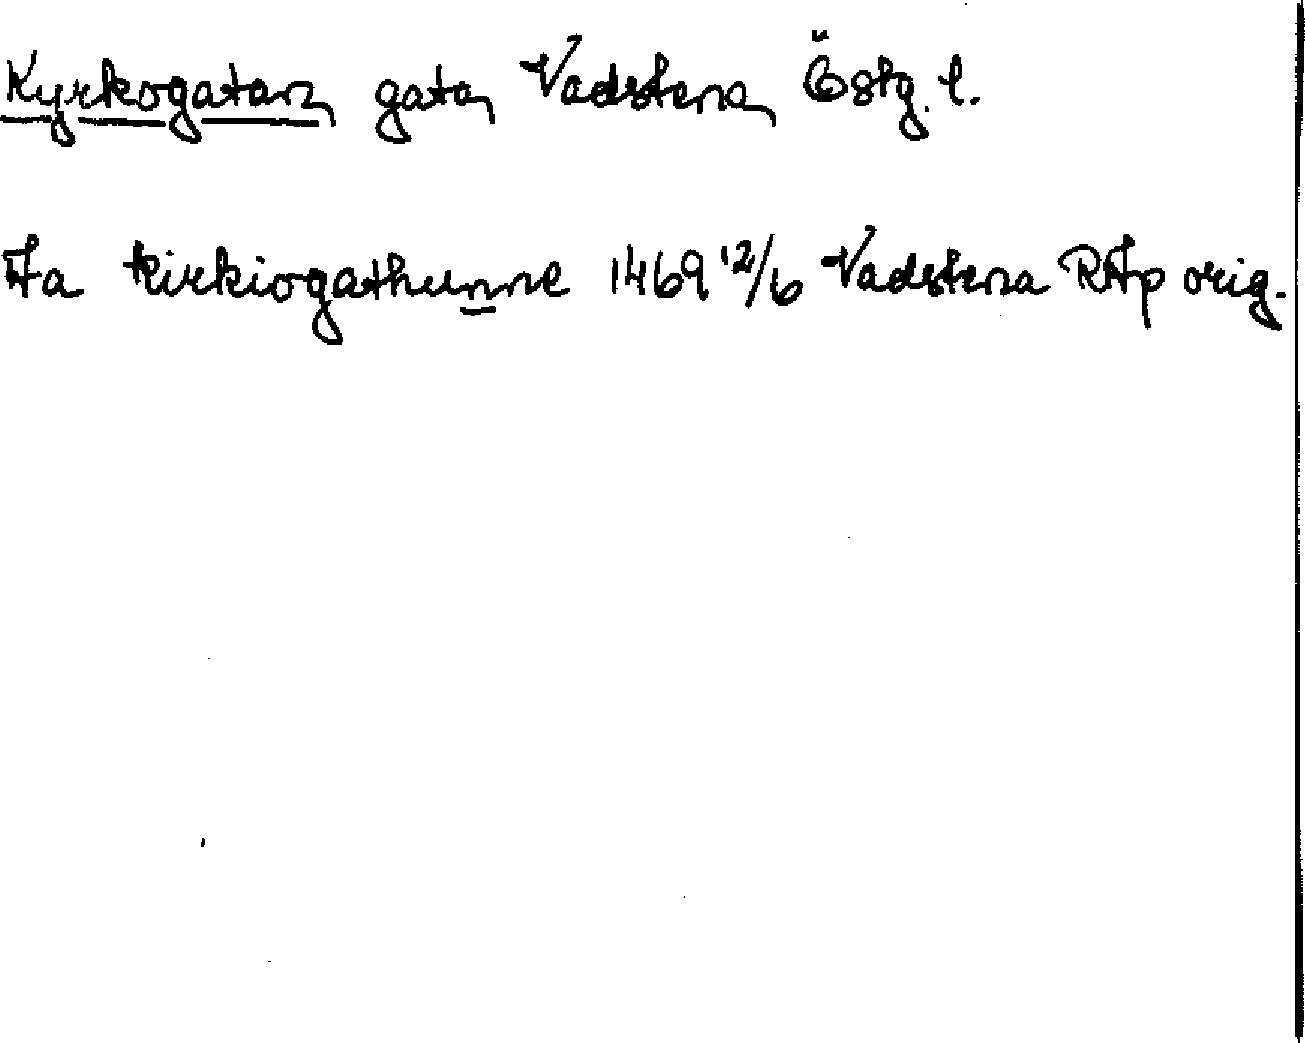 Kyrkogatan, gata, Vadstena, Östg. l.
Aa kirkiogathunne 1469 12/6 Vadstena RAp orig.